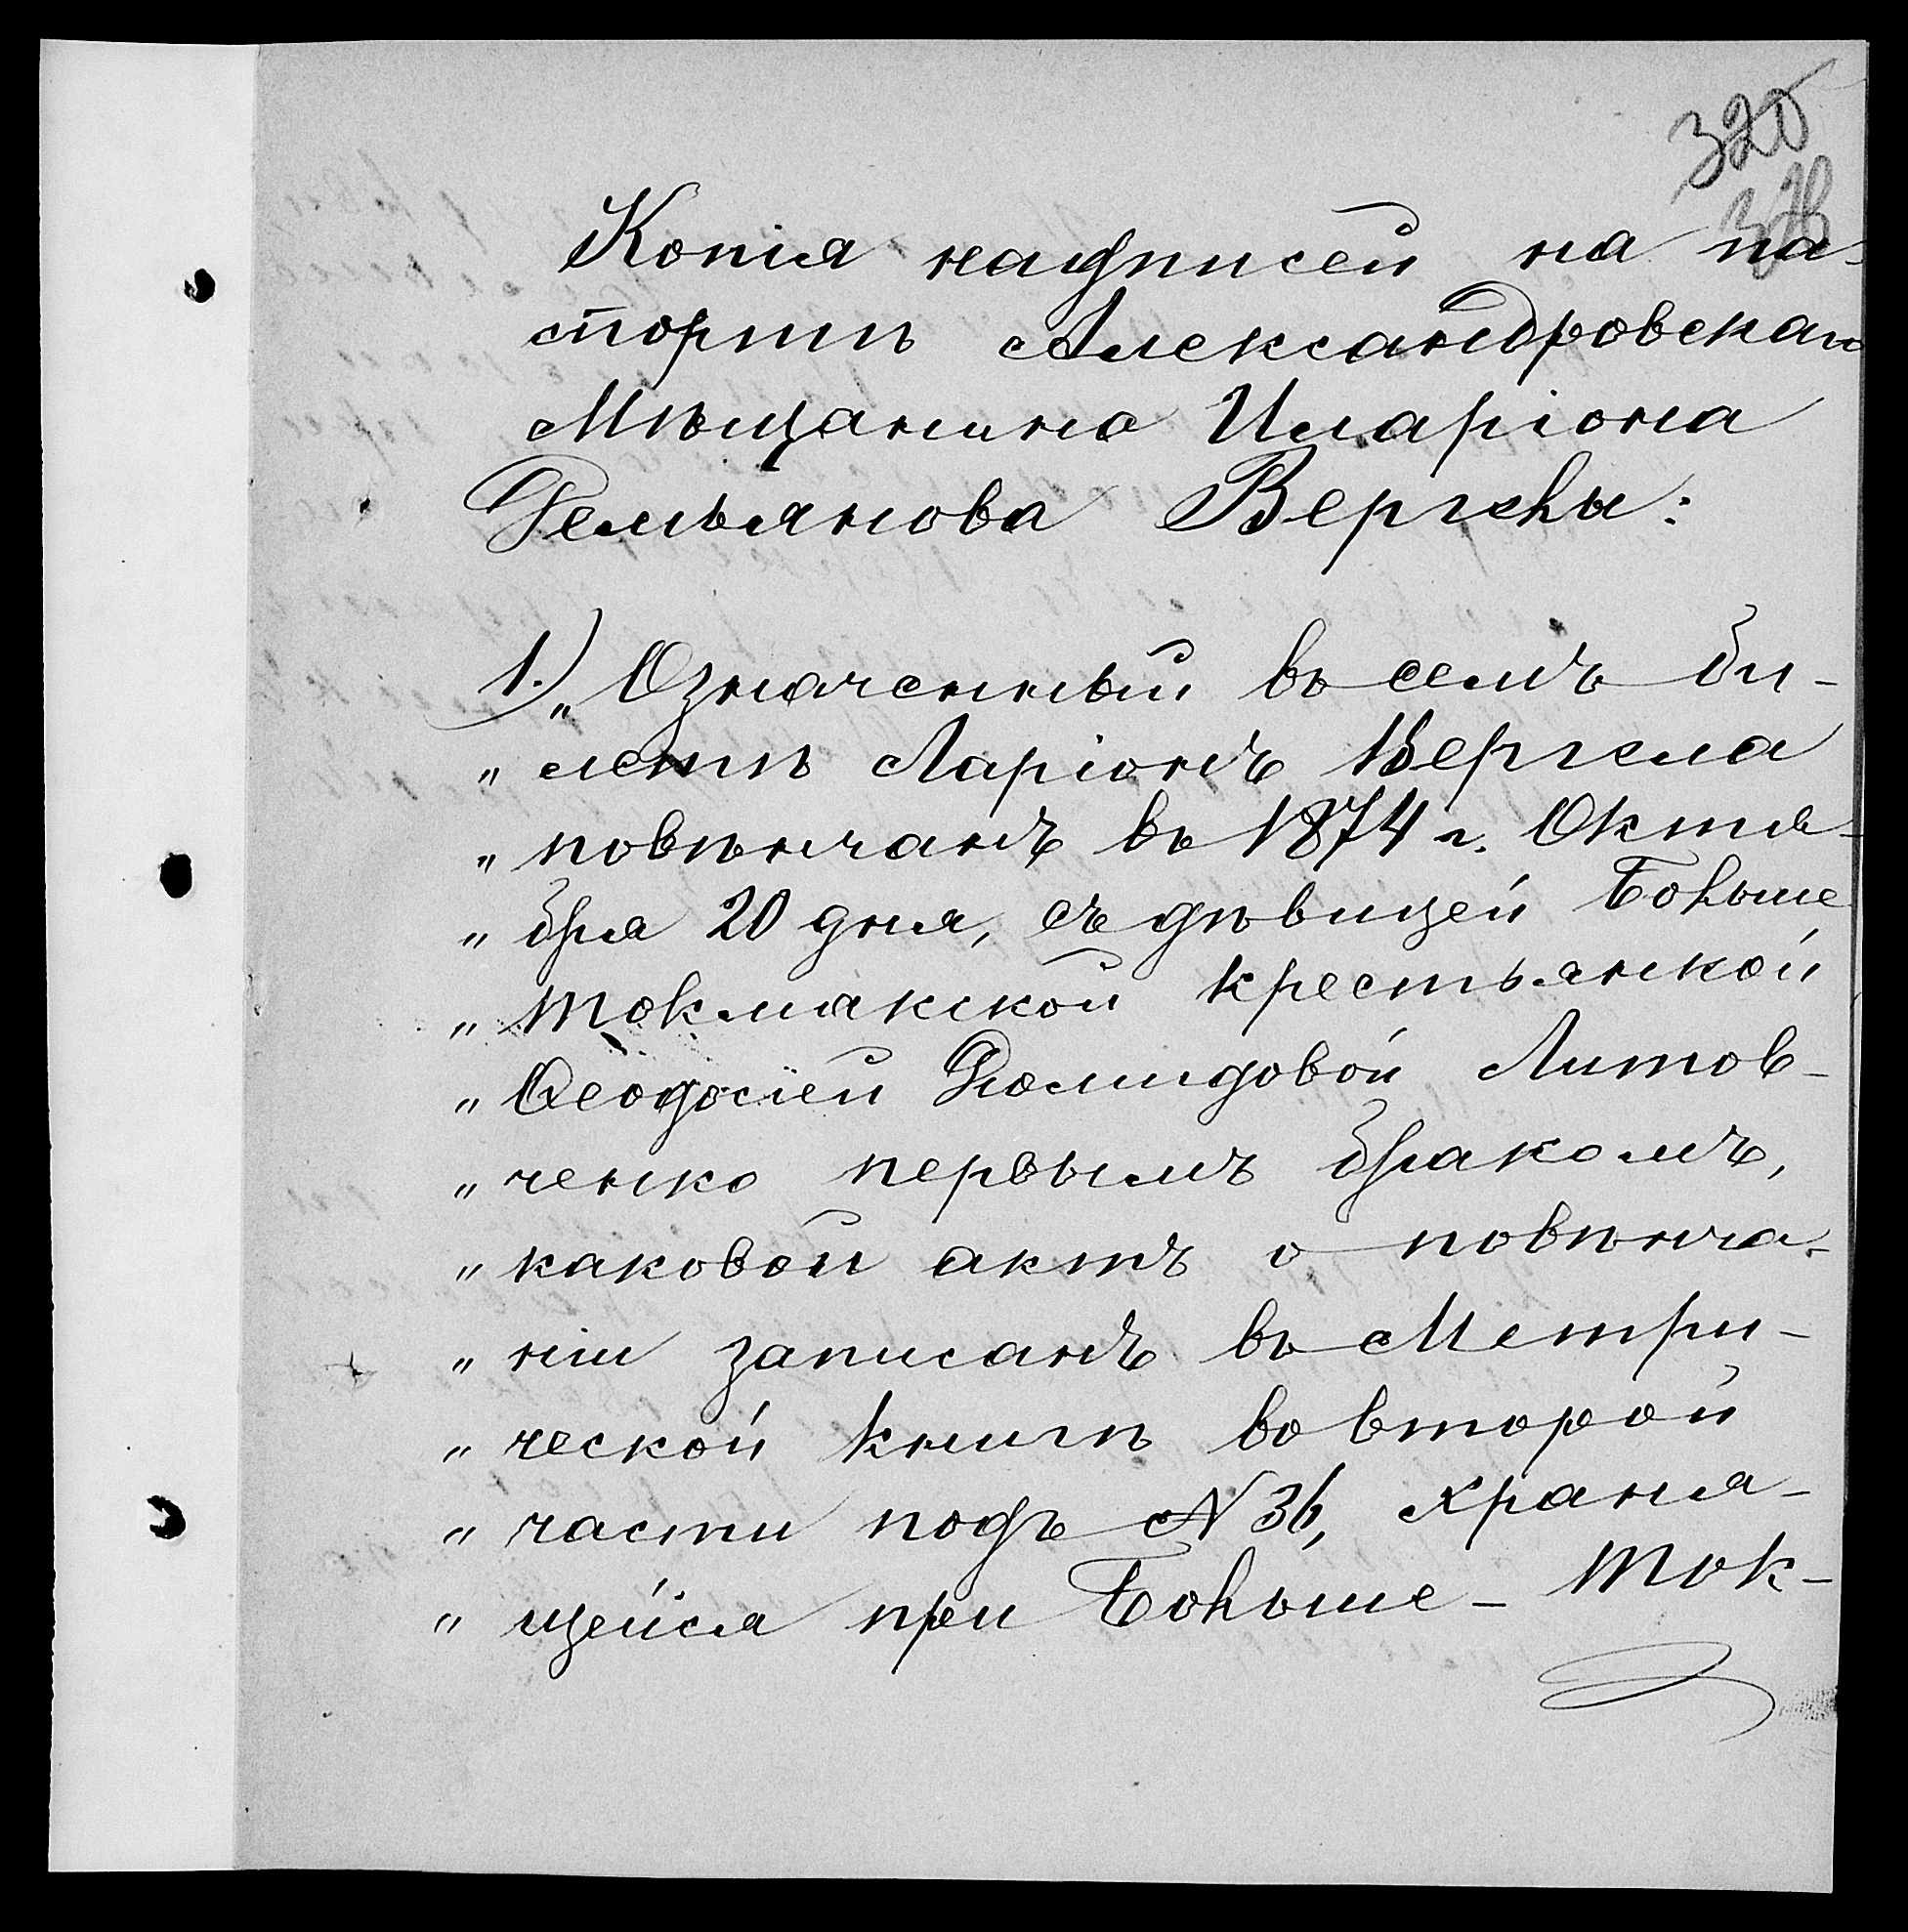 320
Копія надписей на па-
спортѣ Александровскаго
Мѣщанина Иларіона
Демьянова Вергелы:
1.) „Означенный въ семъ би-
„ летѣ Ларіонъ Вергела
„ повѣнчанъ въ 1874 г. Октя-
„ бря 20 дня, съ дѣвицей Больше
„ Токмакской крестьянкой
„ Ѳеодосіей Діомидовой Литов-
„ ченко первымъ бракомъ,
„ каковой актъ о повѣнча-
„ ніи записанъ въ Метри-
„ ческой книгѣ во второй
„ части подъ N 36, храня-
„ щейся при Больше-Ток-